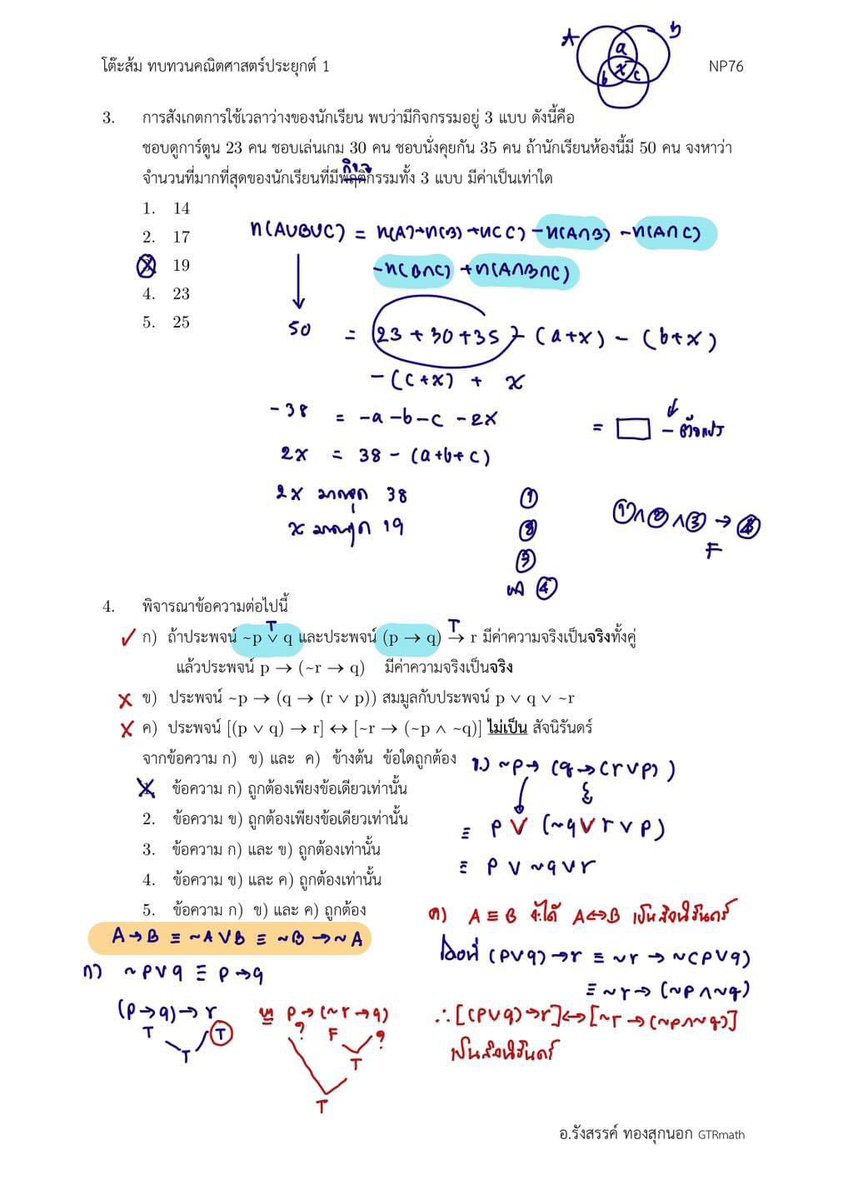 A
B
a
x
b
c
โต๊ะส้ม ทบทวนคณิตศาสตร์ประยุกต์ 1
NP76
3. การสังเกตการใช้เวลาว่างของนักเรียน พบว่ามีกิจกรรมอยู่ 3 แบบ ดังนี้คือ
ชอบดูการ์ตูน 23 คน ชอบเล่นเกม 30 คน ชอบนั่งคุยกัน 35 คน ถ้านักเรียนห้องนี้มี 50 คน จงหาว่า
กิจ
จำนวนที่มากที่สุดของนักเรียนที่มีพฤติกรรมทั้ง 3 แบบ มีค่าเป็นเท่าใด
1. 14
2. 17
3. 19
4. 23
5. 25
n(A∪B∪C) = n(A)+n(B)+n(C) -n(A∩B) -n(A∩C)
-n(B∩C) +n(A∩B∩C)
50 = (23+30+35) - (a+x) - (b+x)
-(c+x) + x
-38 = -a-b-c-2x
= □ - ตัวแปร
2x = 38 - (a+b+c)
2x มากสุด 38
x มากสุด 19
①
②
③
ผล ④
①∧②∧③ → ④
F
4. พิจารณาข้อความต่อไปนี้
T
T
✓ ก) ถ้าประพจน์ ~p ∨ q และประพจน์ (p → q) → r มีค่าความจริงเป็นจริงทั้งคู่
แล้วประพจน์ p → (~r → q) มีค่าความจริงเป็นจริง
✗ ข) ประพจน์ ~p → (q → (r ∨ p)) สมมูลกับประพจน์ p ∨ q ∨ ~r
✗ ค) ประพจน์ [(p ∨ q) → r] ↔ [~r → (~p ∧ ~q)] ไม่เป็น สัจนิรันดร์
จากข้อความ ก) ข) และ ค) ข้างต้น ข้อใดถูกต้อง
1. ข้อความ ก) ถูกต้องเพียงข้อเดียวเท่านั้น
2. ข้อความ ข) ถูกต้องเพียงข้อเดียวเท่านั้น
3. ข้อความ ก) และ ข) ถูกต้องเท่านั้น
4. ข้อความ ข) และ ค) ถูกต้องเท่านั้น
5. ข้อความ ก) ข) และ ค) ถูกต้อง
ข.) ~p → (q → (r∨p))
≡ p ∨ (~q ∨ r ∨ p)
≡ p ∨ ~q ∨ r
A→B ≡ ~A∨B ≡ ~B→~A
ก) ~p∨q ≡ p→q
(p→q)→r
T
T
T
p→(~r→q)
? F ?
T
T
ค) A≡B จะได้ A↔B เป็นสัจนิรันดร์
โดยที่ (p∨q)→r ≡ ~r → ~(p∨q)
≡ ~r → (~p∧~q)
∴ [(p∨q)→r]↔[~r→(~p∧~q)]
เป็นสัจนิรันดร์
อ.รังสรรค์ ทองสุกนอก GTRmath